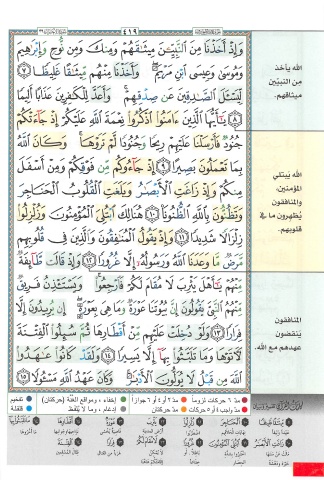 ٤١٩
وَإِذْ أَخَذْنَا مِنَ ٱلنَّبِيِّـۧنَ مِيثَـٰقَهُمْ وَمِنكَ وَمِن نُّوحٍ وَإِبْرَٰهِيمَ
وَمُوسَىٰ وَعِيسَى ٱبْنِ مَرْيَمَ ۖ وَأَخَذْنَا مِنْهُم مِّيثَـٰقًا غَلِيظًا ٧
لِّيَسْـَٔلَ ٱلصَّـٰدِقِينَ عَن صِدْقِهِمْ ۚ وَأَعَدَّ لِلْكَـٰفِرِينَ عَذَابًا أَلِيمًا
٨ يَـٰٓأَيُّهَا ٱلَّذِينَ ءَامَنُوا۟ ٱذْكُرُوا۟ نِعْمَةَ ٱللَّهِ عَلَيْكُمْ إِذْ جَآءَتْكُمْ
جُنُودٌ فَأَرْسَلْنَا عَلَيْهِمْ رِيحًا وَجُنُودًا لَّمْ تَرَوْهَا ۚ وَكَانَ ٱللَّهُ
بِمَا تَعْمَلُونَ بَصِيرًا ٩ إِذْ جَآءُوكُم مِّن فَوْقِكُمْ وَمِنْ أَسْفَلَ
مِنكُمْ وَإِذْ زَاغَتِ ٱلْأَبْصَـٰرُ وَبَلَغَتِ ٱلْقُلُوبُ ٱلْحَنَاجِرَ
وَتَظُنُّونَ بِٱللَّهِ ٱلظُّنُونَا۠ ١٠ هُنَالِكَ ٱبْتُلِىَ ٱلْمُؤْمِنُونَ وَزُلْزِلُوا۟
زِلْزَالًا شَدِيدًا ١١ وَإِذْ يَقُولُ ٱلْمُنَـٰفِقُونَ وَٱلَّذِينَ فِى قُلُوبِهِم
مَّرَضٌ مَّا وَعَدَنَا ٱللَّهُ وَرَسُولُهُۥٓ إِلَّا غُرُورًا ١٢ وَإِذْ قَالَت طَّآئِفَةٌ
مِّنْهُمْ يَـٰٓأَهْلَ يَثْرِبَ لَا مُقَامَ لَكُمْ فَٱرْجِعُوا۟ ۚ وَيَسْتَـْٔذِنُ فَرِيقٌ
مِّنْهُمُ ٱلنَّبِىَّ يَقُولُونَ إِنَّ بُيُوتَنَا عَوْرَةٌ وَمَا هِىَ بِعَوْرَةٍ ۖ إِن يُرِيدُونَ إِلَّا
فِرَارًا ١٣ وَلَوْ دُخِلَتْ عَلَيْهِم مِّنْ أَقْطَارِهَا ثُمَّ سُئِلُوا۟ ٱلْفِتْنَةَ
لَـَٔاتَوْهَا وَمَا تَلَبَّثُوا۟ بِهَآ إِلَّا يَسِيرًا ١٤ وَلَقَدْ كَانُوا۟ عَـٰهَدُوا۟
ٱللَّهَ مِن قَبْلُ لَا يُوَلُّونَ ٱلْأَدْبَـٰرَ ۚ وَكَانَ عَهْدُ ٱللَّهِ مَسْـُٔولًا ١٥
الله يأخذ
من النبيّين
ميثاقهم.
الله يبتلي
المؤمنين،
والمنافقون
يُظهرون ما في
قلوبهم.
المنافقون
ينقضون
عهدهم مع الله.
مدّ ٦ حركات لزوماً
مدّ ٢ أو ٤ أو ٦ جوازاً
إخفاء، ومواقع الغُنّة (حركتان)
تفخيم
مدّ واجب ٤ أو ٥ حركات
مدّ حركتان
إدغام، وما لا يُلفَظ
قلقلة